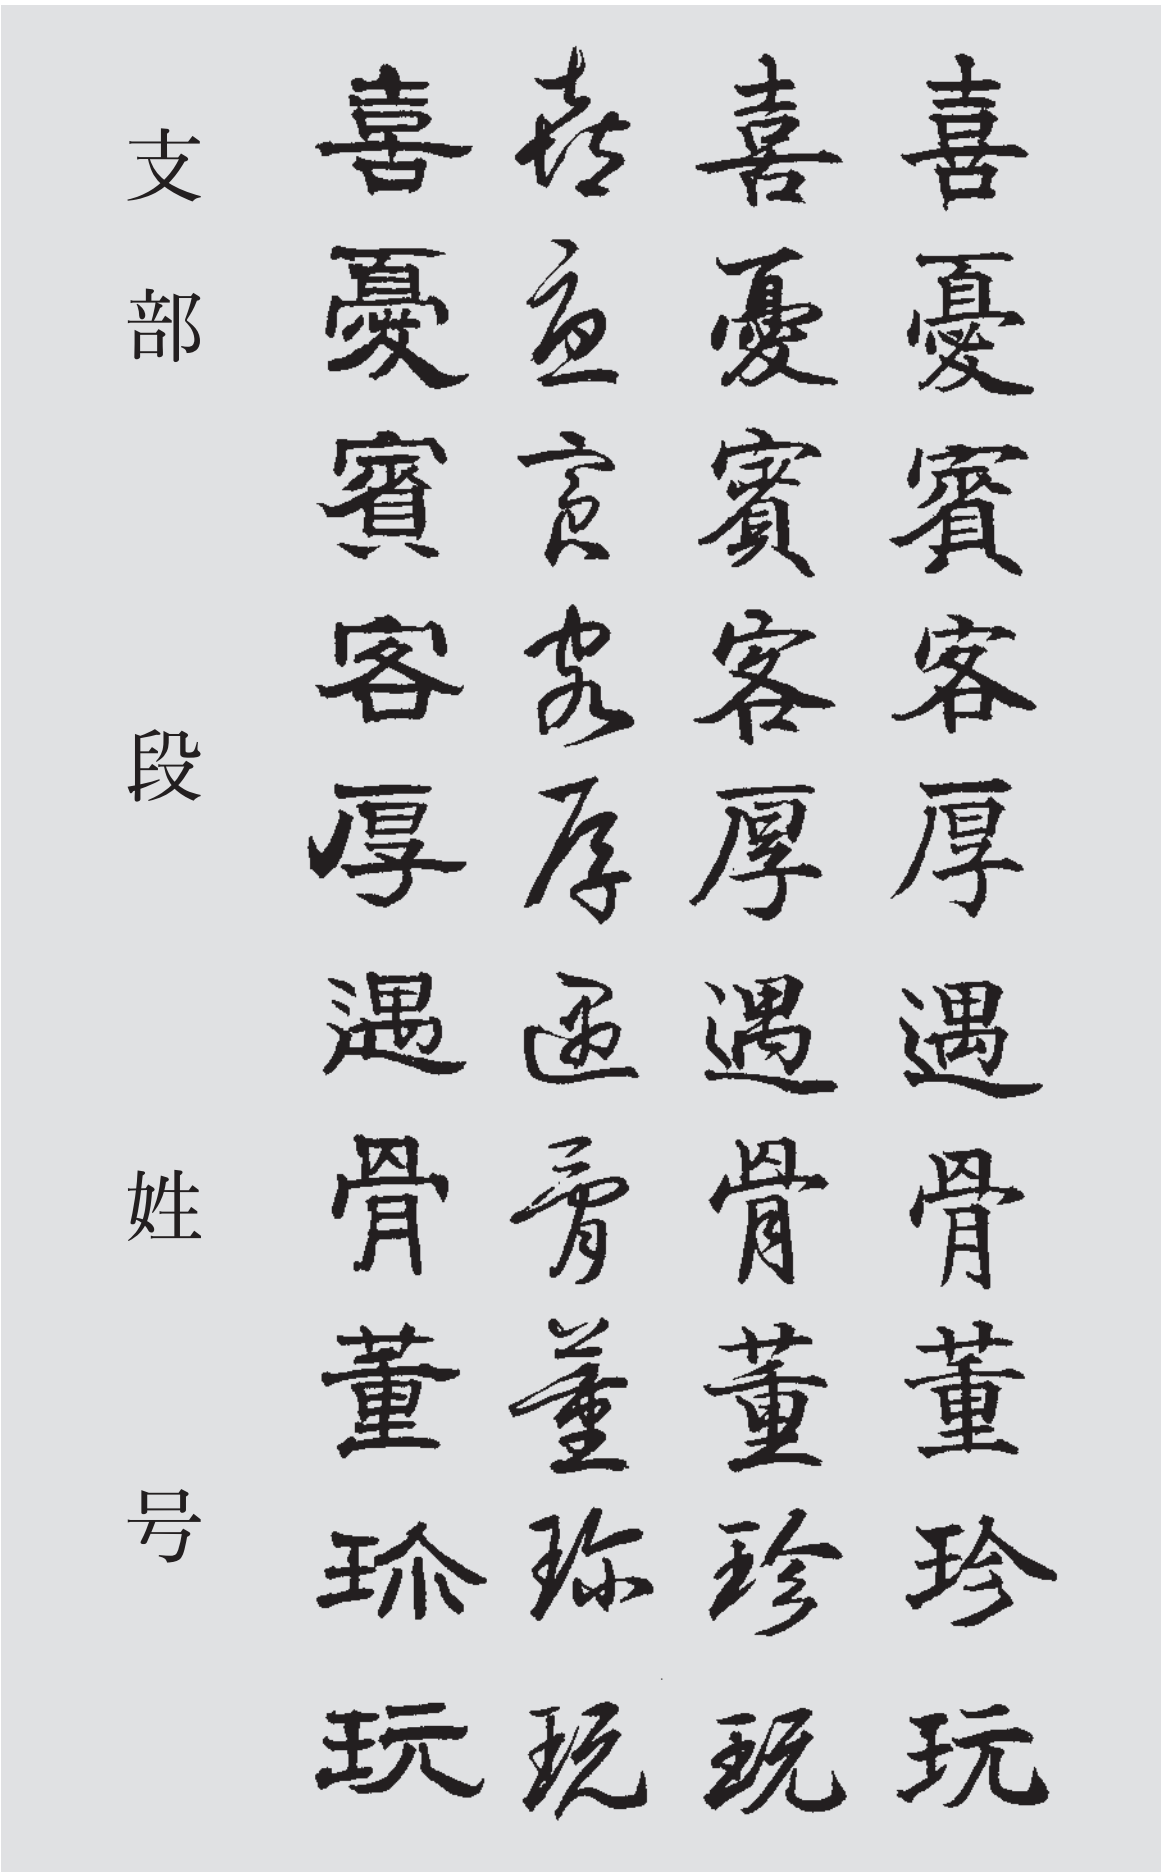 喜憂賓客厚遇骨董珍玩
喜憂賓客厚遇骨董珍玩
喜憂賓客厚遇骨董珎玩
喜憂賓客厚遇骨董珎玩
支部 段 姓号